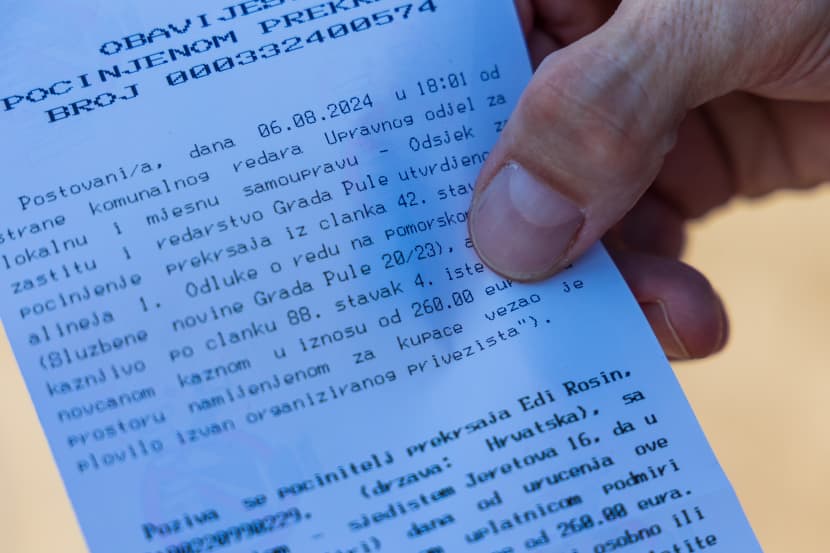 OBAVIJEST
POCINJENOM
BROJ 000332400574
Postovani/a, dana 06.08.2024 u 18:01 od
strane komunalnog redara Upravnog odjel za
lokalnu i mjesnu samoupravu - Odsjek za
zastitu i redarstvo Grada Pule utvrdjeno
pocinjenje prekrsaja iz clanka 42. stav
alineja 1. Odluke o redu na pomorskom
(Sluzbene novine Grada Pule 20/23), a
kaznjivo po clanku 88. stavak 4. iste
novcanom kaznom u iznosu od 260.00 eur
prostoru namijenjenom za kupace vezao je
plovilo izvan organiziranog privezista").
Poziva se pocinitelj prekrsaja Edi Rosin,
(drzava: Hrvatska), sa
- sjedistem Jeretova 16, da u
dana od urucenja ove
uplatnicom podmiri
od 260.00 eura.
osobno ili